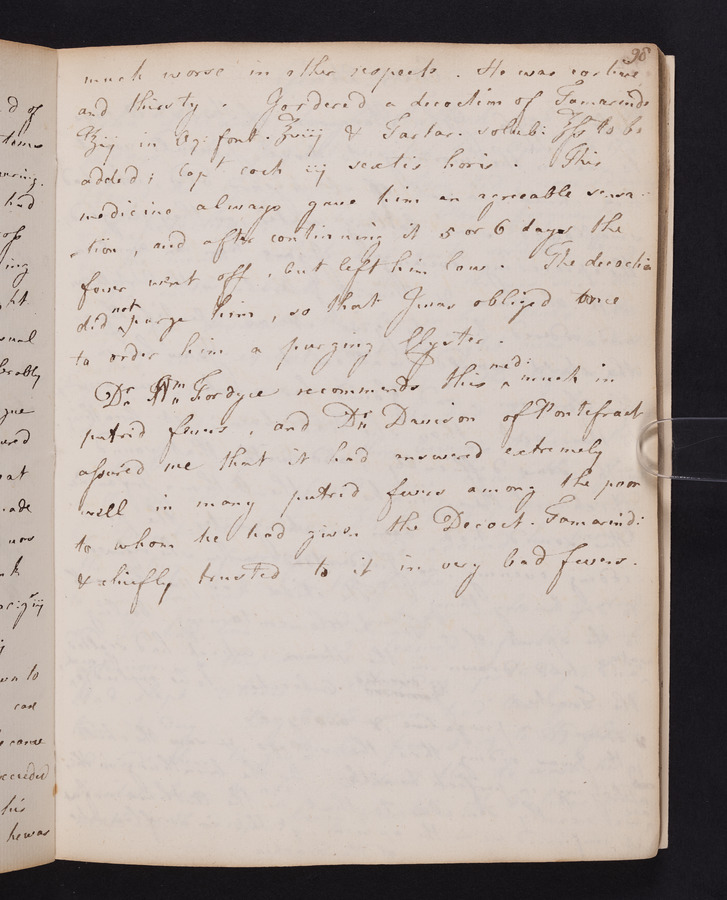 98
much worse in other respects. He was costive
and thirsty. I ordered a decoction of Tamarinds
℥ij in Aq: font. ℥viij & Tartar. solub: ℥fs to be
added; capt coch iij sextis horis. This
medicine always gave him an agreeable sensa-
-tion, and after continuing it 5 or 6 days the
fever went off, but left him low. The decoction
did not purge him, so that I was obliged once
to order him a purging Clyster.
Dr. Wm Fordyce recommends this medi: much in
putrid fevers, and Dr. Davison of Pontefract
assured me that it had answered extremely
well in many putrid fevers among the poor
to whom he had given the Decoct. Tamarind:
& chiefly trusted to it in very bad fevers.